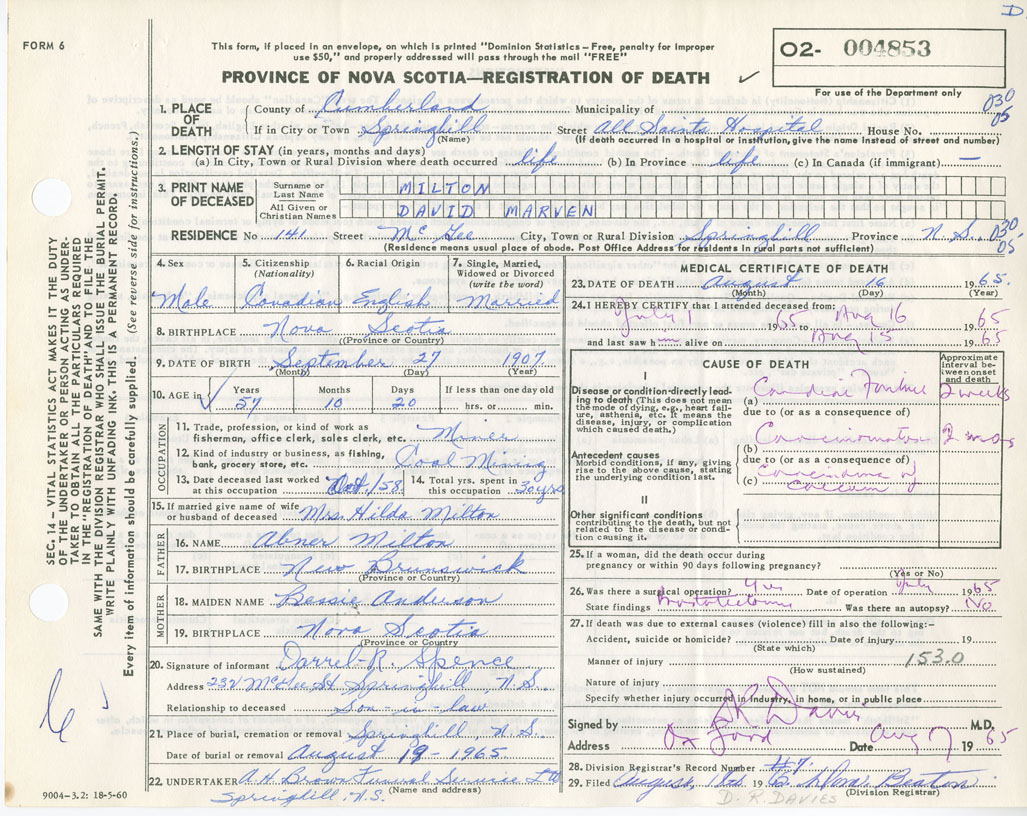 D
FORM 6
This form, if placed in an envelope, on which is printed "Dominion Statistics – Free, penalty for improper
use $50," and properly addressed will pass through the mail "FREE"
O2- 004853
PROVINCE OF NOVA SCOTIA—REGISTRATION OF DEATH ✓
For use of the Department only
1. PLACE OF DEATH
County of Cumberland Municipality of 030
05
If in City or Town Springhill Street All Saints Hospital House No.
(Name) (If death occurred in a hospital or institution, give the name instead of street and number)
2. LENGTH OF STAY (in years, months and days)
(a) In City, Town or Rural Division where death occurred life (b) In Province life (c) In Canada (if immigrant) —
3. PRINT NAME OF DECEASED
Surname or Last Name MILTON
All Given or Christian Names DAVID MARVEN
RESIDENCE No 141 Street McGee City, Town or Rural Division Springhill Province N.S. 030
05
(Residence means usual place of abode. Post Office Address for residents in rural parts not sufficient)
SEC. 14 – VITAL STATISTICS ACT MAKES IT THE DUTY
OF THE UNDERTAKER OR PERSON ACTING AS UNDER-
TAKER TO OBTAIN ALL THE PARTICULARS REQUIRED
IN THE "REGISTRATION OF DEATH" AND TO FILE THE
SAME WITH THE DIVISION REGISTRAR WHO SHALL ISSUE THE BURIAL PERMIT.
WRITE PLAINLY WITH UNFADING INK. THIS IS A PERMANENT RECORD.
Every item of information should be carefully supplied. (See reverse side for instructions.)
4. Sex
Male
5. Citizenship
(Nationality)
Canadian
6. Racial Origin
English
7. Single, Married,
Widowed or Divorced
(write the word)
Married
8. BIRTHPLACE Nova Scotia
(Province or Country)
9. DATE OF BIRTH September 27 1907
(Month) (Day) (Year)
10. AGE in
Years Months Days If less than one day old
57 10 20 hrs. or min.
OCCUPATION
11. Trade, profession, or kind of work as
fisherman, office clerk, sales clerk, etc. Miner
12. Kind of industry or business, as fishing,
bank, grocery store, etc. Coal Mining
13. Date deceased last worked
at this occupation Oct/58
14. Total yrs. spent in
this occupation 30 yrs
15. If married give name of wife
or husband of deceased Mrs. Hilda Milton
FATHER
16. NAME Abner Milton
17. BIRTHPLACE New Brunswick
(Province or Country)
MOTHER
18. MAIDEN NAME Bessie Anderson
19. BIRTHPLACE Nova Scotia
(Province or Country)
20. Signature of informant Darrel R. Spence
Address 232 McGee St Springhill, N.S.
Relationship to deceased Son-in-law
21. Place of burial, cremation or removal Springhill, N.S.
Date of burial or removal August 19-1965
22. UNDERTAKER A.H. Brown Funeral Service Ltd
(Name and address)
Springhill, N.S.
9004–3.2: 18-5-60
MEDICAL CERTIFICATE OF DEATH
23. DATE OF DEATH August 16 1965.
(Month) (Day) (Year)
24. I HEREBY CERTIFY that I attended deceased from:
July 1 1965 to Aug 16 1965
and last saw him alive on Aug 15 1965
CAUSE OF DEATH
Approximate interval between onset and death
I
Disease or condition directly lead-
ing to death (This does not mean
the mode of dying, e.g., heart fail-
ure, asthenia, etc. It means the
disease, injury, or complication
which caused death.)
(a) Cardiac Failure 2 weeks
due to (or as a consequence of)
(b) Carcinomatosis 2 mos
Antecedent causes
Morbid conditions, if any, giving
rise to the above cause, stating
the underlying condition last.
due to (or as a consequence of)
(c) carcinoma of
caecum
II
Other significant conditions
contributing to the death, but not
related to the disease or condi-
tion causing it.
25. If a woman, did the death occur during
pregnancy or within 90 days following pregnancy?
(Yes or No)
26. Was there a surgical operation? Yes Date of operation July 1965
State findings Was there an autopsy? No
27. If death was due to external causes (violence) fill in also the following:–
Accident, suicide or homicide? Date of injury 19
(State which)
Manner of injury 153.0
(How sustained)
Nature of injury
Specify whether injury occurred in industry, in home, or in public place
Signed by D R Davies M.D.
Address Oxford Date Aug 17 1965
28. Division Registrar's Record Number #7
29. Filed August 196 Beaton
(Division Registrar)
D. R. DAVIES